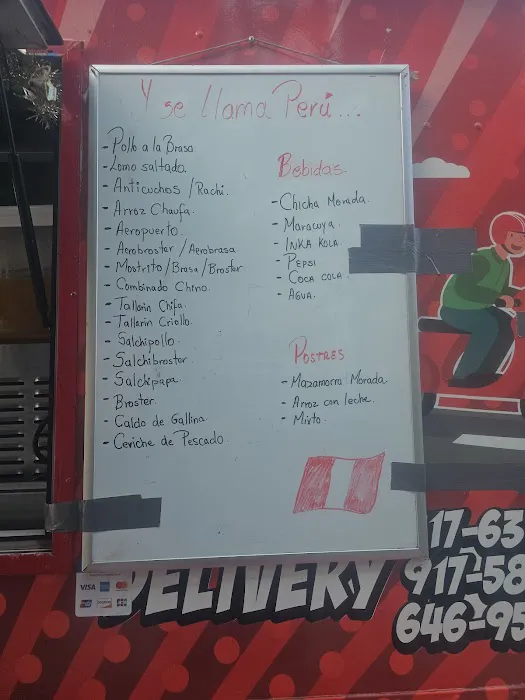 Y se llama Perú...
- Pollo a la Brasa
- Lomo saltado.
- Anticuchos / Rachi.
- Arroz Chaufa.
- Aeropuerto.
- Aerobroster / Aerobrasa
- Mostrito / Brasa / Broster
- Combinado Chino.
- Tallarin Chifa.
- Tallarin Criollo.
- Salchipollo.
- Salchibroster
- Salchipapa.
- Broster.
- Caldo de Gallina.
- Ceviche de Pescado
Bebidas.
- Chicha Morada.
- Maracuya.
- INKA KOLA
- PEPSI
- COCA COLA
- AGUA.
POSTRES
- Mazamorra Morada.
- Arroz con leche.
- Mixto.
VISA
DELIVERY
17-63
917-58
646-95